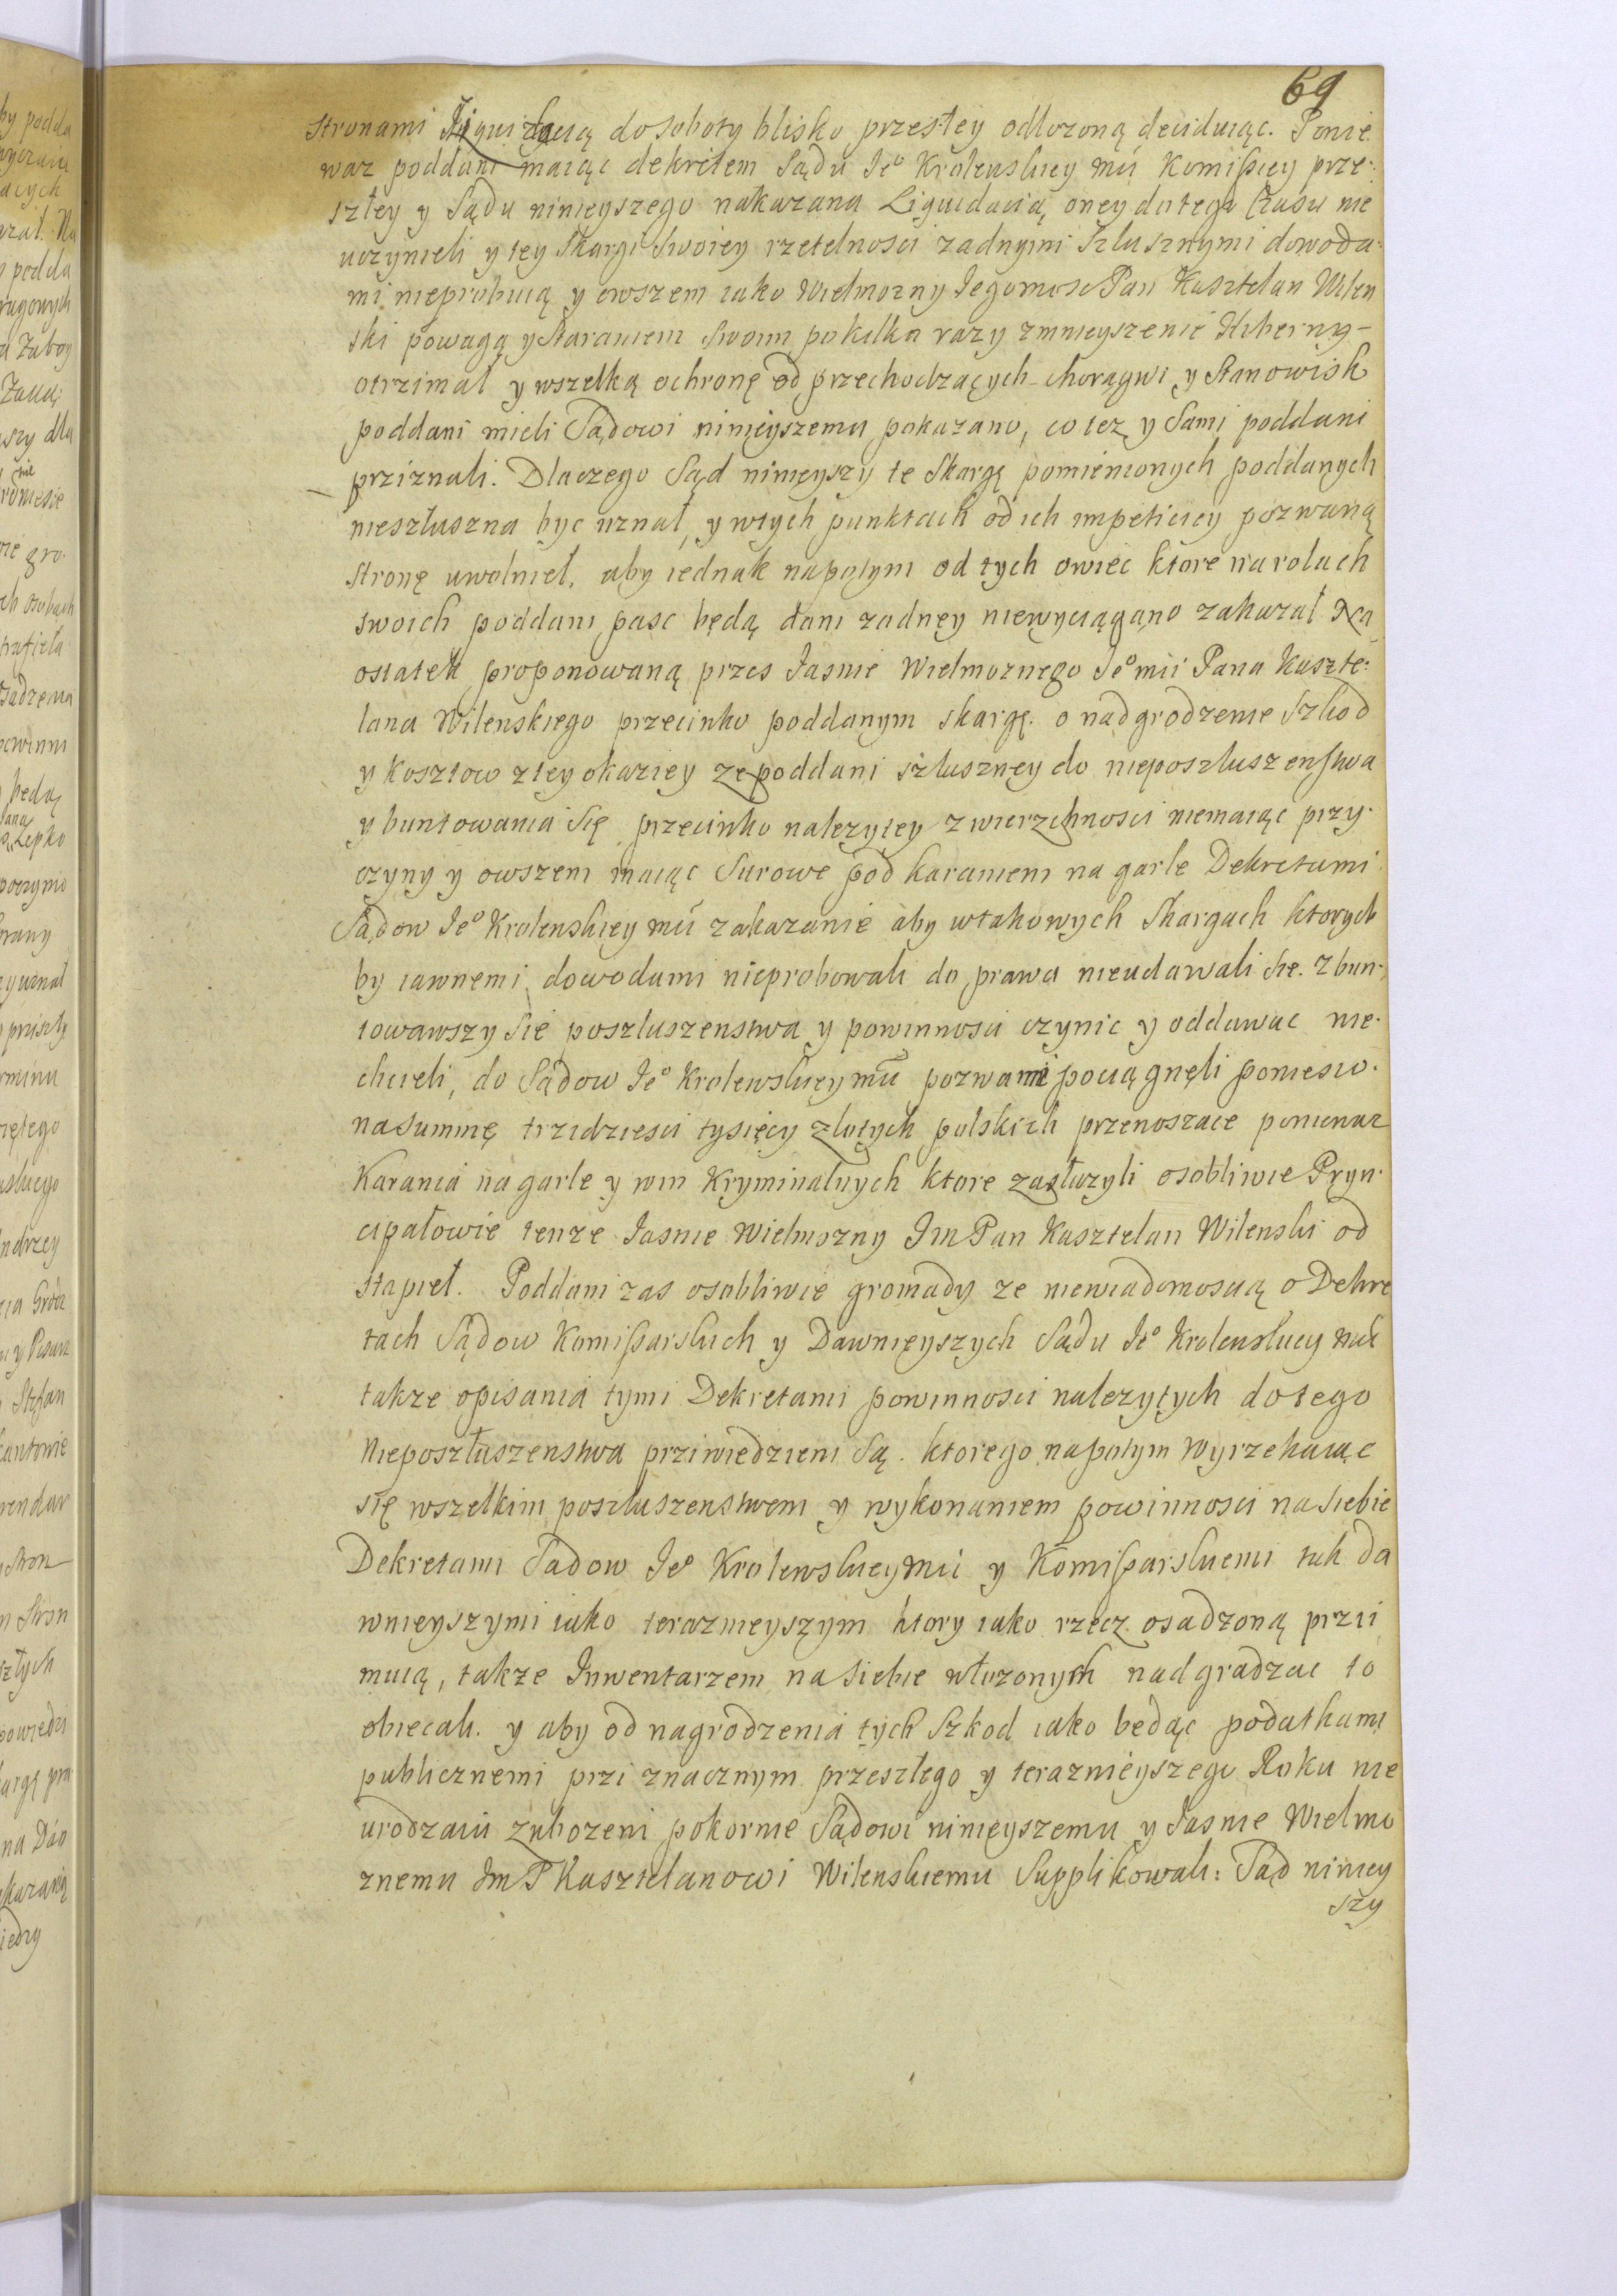 69
stronami Liquidacią do soboty blisko przeszłey odłozoną deciduiąc. Ponie
waz poddani maiąc dekretem Sądu Jeº Krolewskiey mći Komissiey prze-
szłey y Sądu ninieyszego nakazana Liquidacią, oney do tego Czasu nie
uczynieli y tey Skargi swoiey rzetelnosci zadnymi szlusznymi dowoda-
mi nieprobuią y owszem iako Wielmozny Jegomosc Pan Kasztelan Wilen
ski powagą y staraniem swoim pokilka razy zmnieyszenie Hiberny-
otrzimał y wszelką ochronę od przechodzących chorągwi y Stanowisk
poddani mieli Sądowi ninieyszemu pokazano, co tez y Sami poddani
priznali. Dlaczego Sąd ninieyszy te Skargę pomienionych poddanych
nieszłuszna byc uznał, y wtych punktach od ich impeticiey pozwaną
stronę uwolnieł, aby iednak napotym od tych owiec ktore na rolach
swoich poddani pasc będą dani zadney niewyciągano zakazał Na
ostatek proponowaną przes Jasnie Wielmoznego Jeºmći Pana Kaszte-
lana Wilenskiego przeciwko poddanym skargę. o nadgrodzenie Szkod
y Kosztow ztey okaziey ze poddani szłuszney do nieposzluszenstwa
y buntowania Się przeciwko nalezytey zwierzchnosci niemaiąc przy-
czyny y owszem maiąc surowe pod karaniem na garle Dekretami
Sądow Jeº Krolewskiey mći zakazanie aby wtakowych Skargach ktorych
by iawnemi dowodami nieprobowali do prawa nieudawali sie. Zbun-
towawszy Sie poszluszenstwa y powinnosci czynic y oddawac nie-
chcieli, do Sądow Jeº Krolewskiey mći pozwami pociągnęli poniesio-
na summę trzidziesci tysięcy złotych polskich przenoszace poniewaz
Karania na garle y win Kryminalnych ktore zasłuzyli osobliwie Pryn-
cipałowie tenze Jasnie Wielmozny Jm Pan Kasztelan Wilenski od
stapieł. Poddani zas osobliwie gromady ze niewiadomoscią o Dekre
tach Sądow Komissarskich y Dawnieyszych Sądu Jeº Krolewskiey mći
takze opisania tymi Dekretami powinnosci nalezytych do tego
Nieposzłuszenstwa prziwiedzieni Są. ktorego napotym wyrzekaiąc
się wszelkim poszluszenstwem y wykonaniem powinnosci na siebie
Dekretami Sadow Jeº Krolewskiey mći y Komissarskiemi tak da
wnieyszymi iako teraznieyszym ktory iako rzecz osadzoną przii
muią, takze Inwentarzem na siebie włozonych nadgradzac to
obiecali. y aby od nagrodzenia tych Szkod iako bedąc podatkami
publicznemi przi znacznym przeszłego y terazniéyszego Roku nie
urodzaiu zubozeni pokornie Sądowi ninieyszemu y Jasnie Wielmo
znemu Jm P Kasztelanowi Wilenskiemu Supplikowali: Sąd niniey
szy